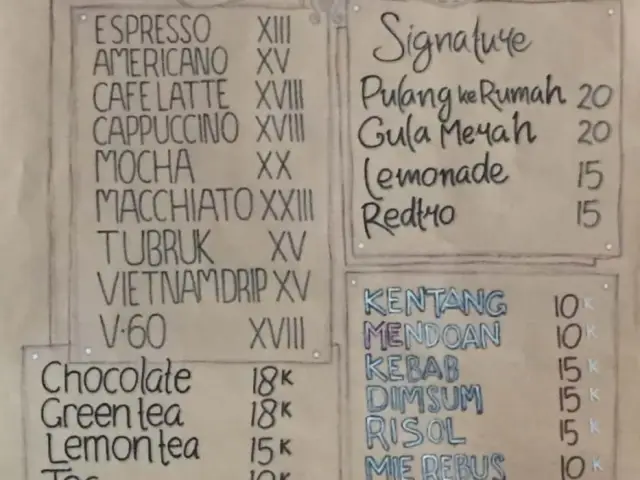 ESPRESSO XIII
AMERICANO XV
CAFE LATTE XVIII
CAPPUCCINO XVIII
MOCHA XX
MACCHIATO XXIII
TUBRUK XV
VIETNAMDRIP XV
V·60 XVIII
Chocolate 18K
Green tea 18K
Lemon tea 15K
Tea 10K
Signature
Pulang ke Rumah 20
Gula Merah 20
Lemonade 15
Redtro 15
KENTANG 10K
MENDOAN 10K
KEBAB 15K
DIMSUM 15K
RISOL 15K
MIE REBUS 10K